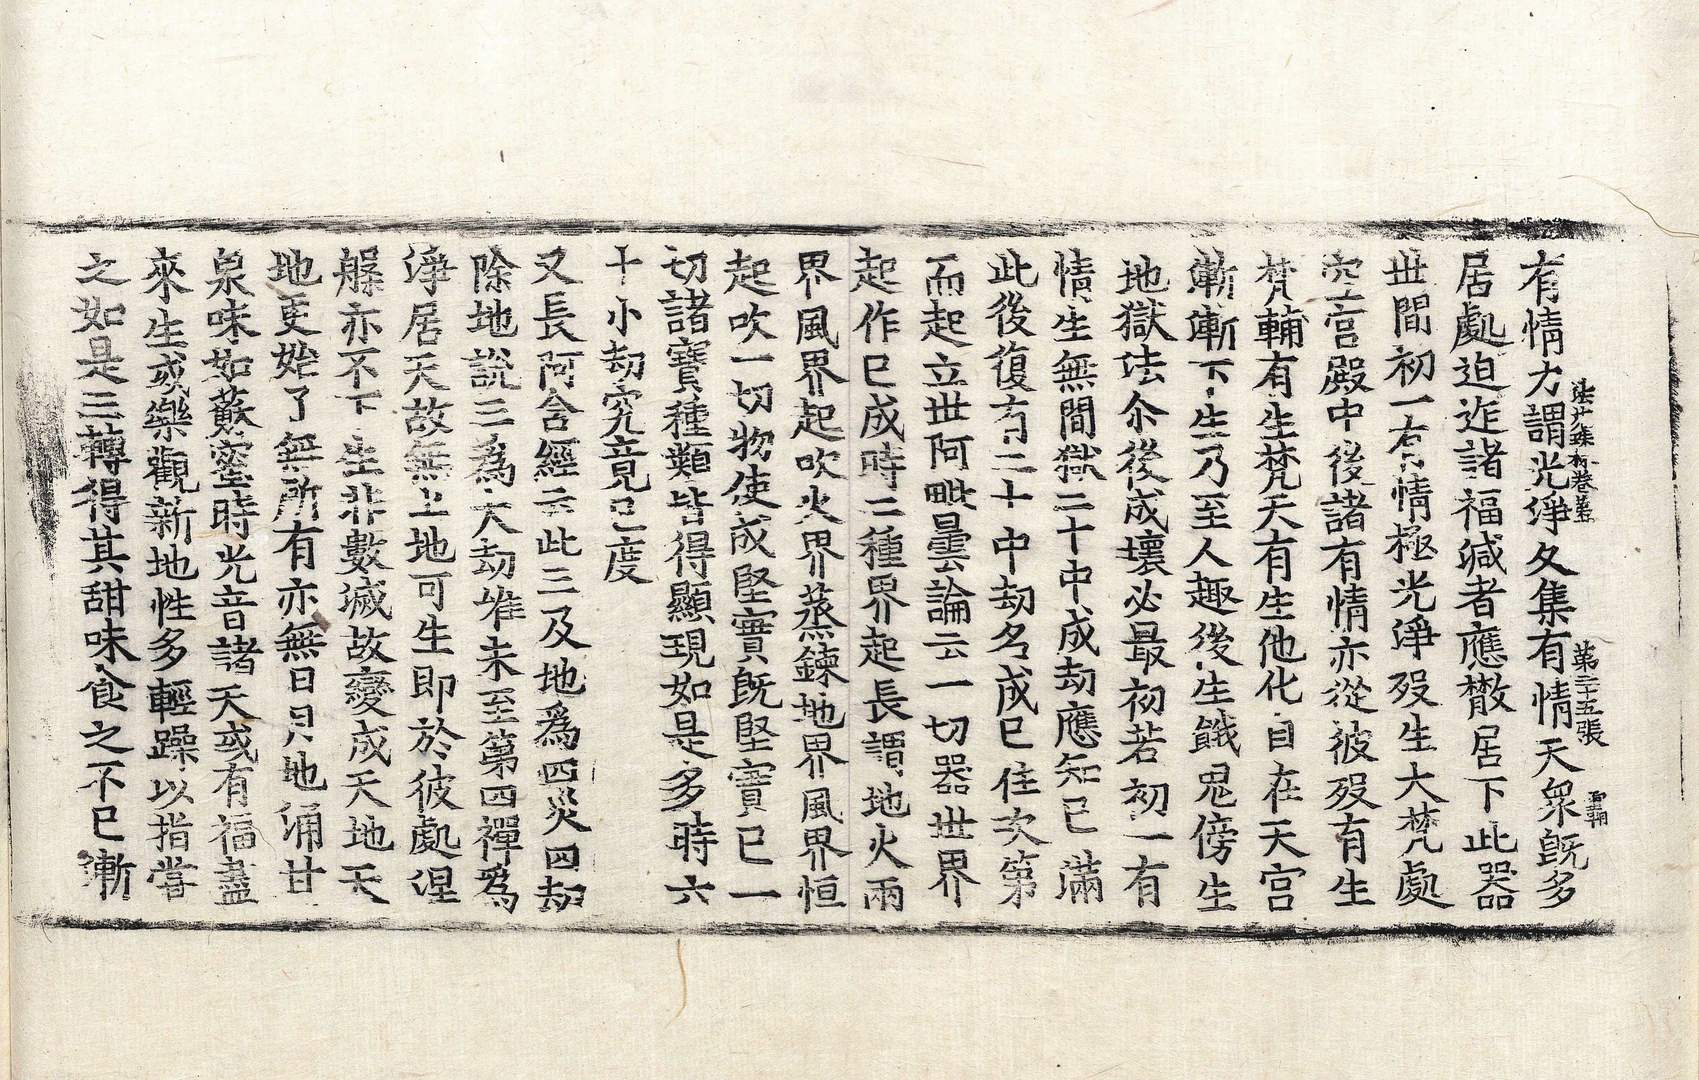 有情力謂光淨久集有情天眾既多
法苑珠林卷第一 第二十五張
居處迫迮諸福減者應散居下此器
世間初一有情極光淨歿生大梵處
空宮殿中後諸有情亦從彼歿有生
梵輔有生梵天有生他化自在天宮
漸漸下生乃至人趣後生餓鬼傍生
地獄法尒後成壞必最初若初一有
情生無間獄二十中成劫應知已滿
此後復有二十中劫名成已住次第
而起立世阿毗曇論云一切器世界
起作已成時二種界起長謂地火兩
界風界起吹火界蒸鍊地界風界恒
起吹一切物使成堅實既堅實已一
切諸寶種難皆得顯現如是多時六
十小劫究竟已度
又長阿含經云此三及地為四災四劫
除地說三為大劫唯未至第四禪為
淨居天故無上地可生即於彼處涅
槃亦不下生非數滅故變成天地天
地更始了無所有亦無日月地涌甘
泉味如蘇蜜時光音諸天或有福盡
來生或樂觀新地性多輕躁以指嘗
之如是三轉得其甜味食之不已漸